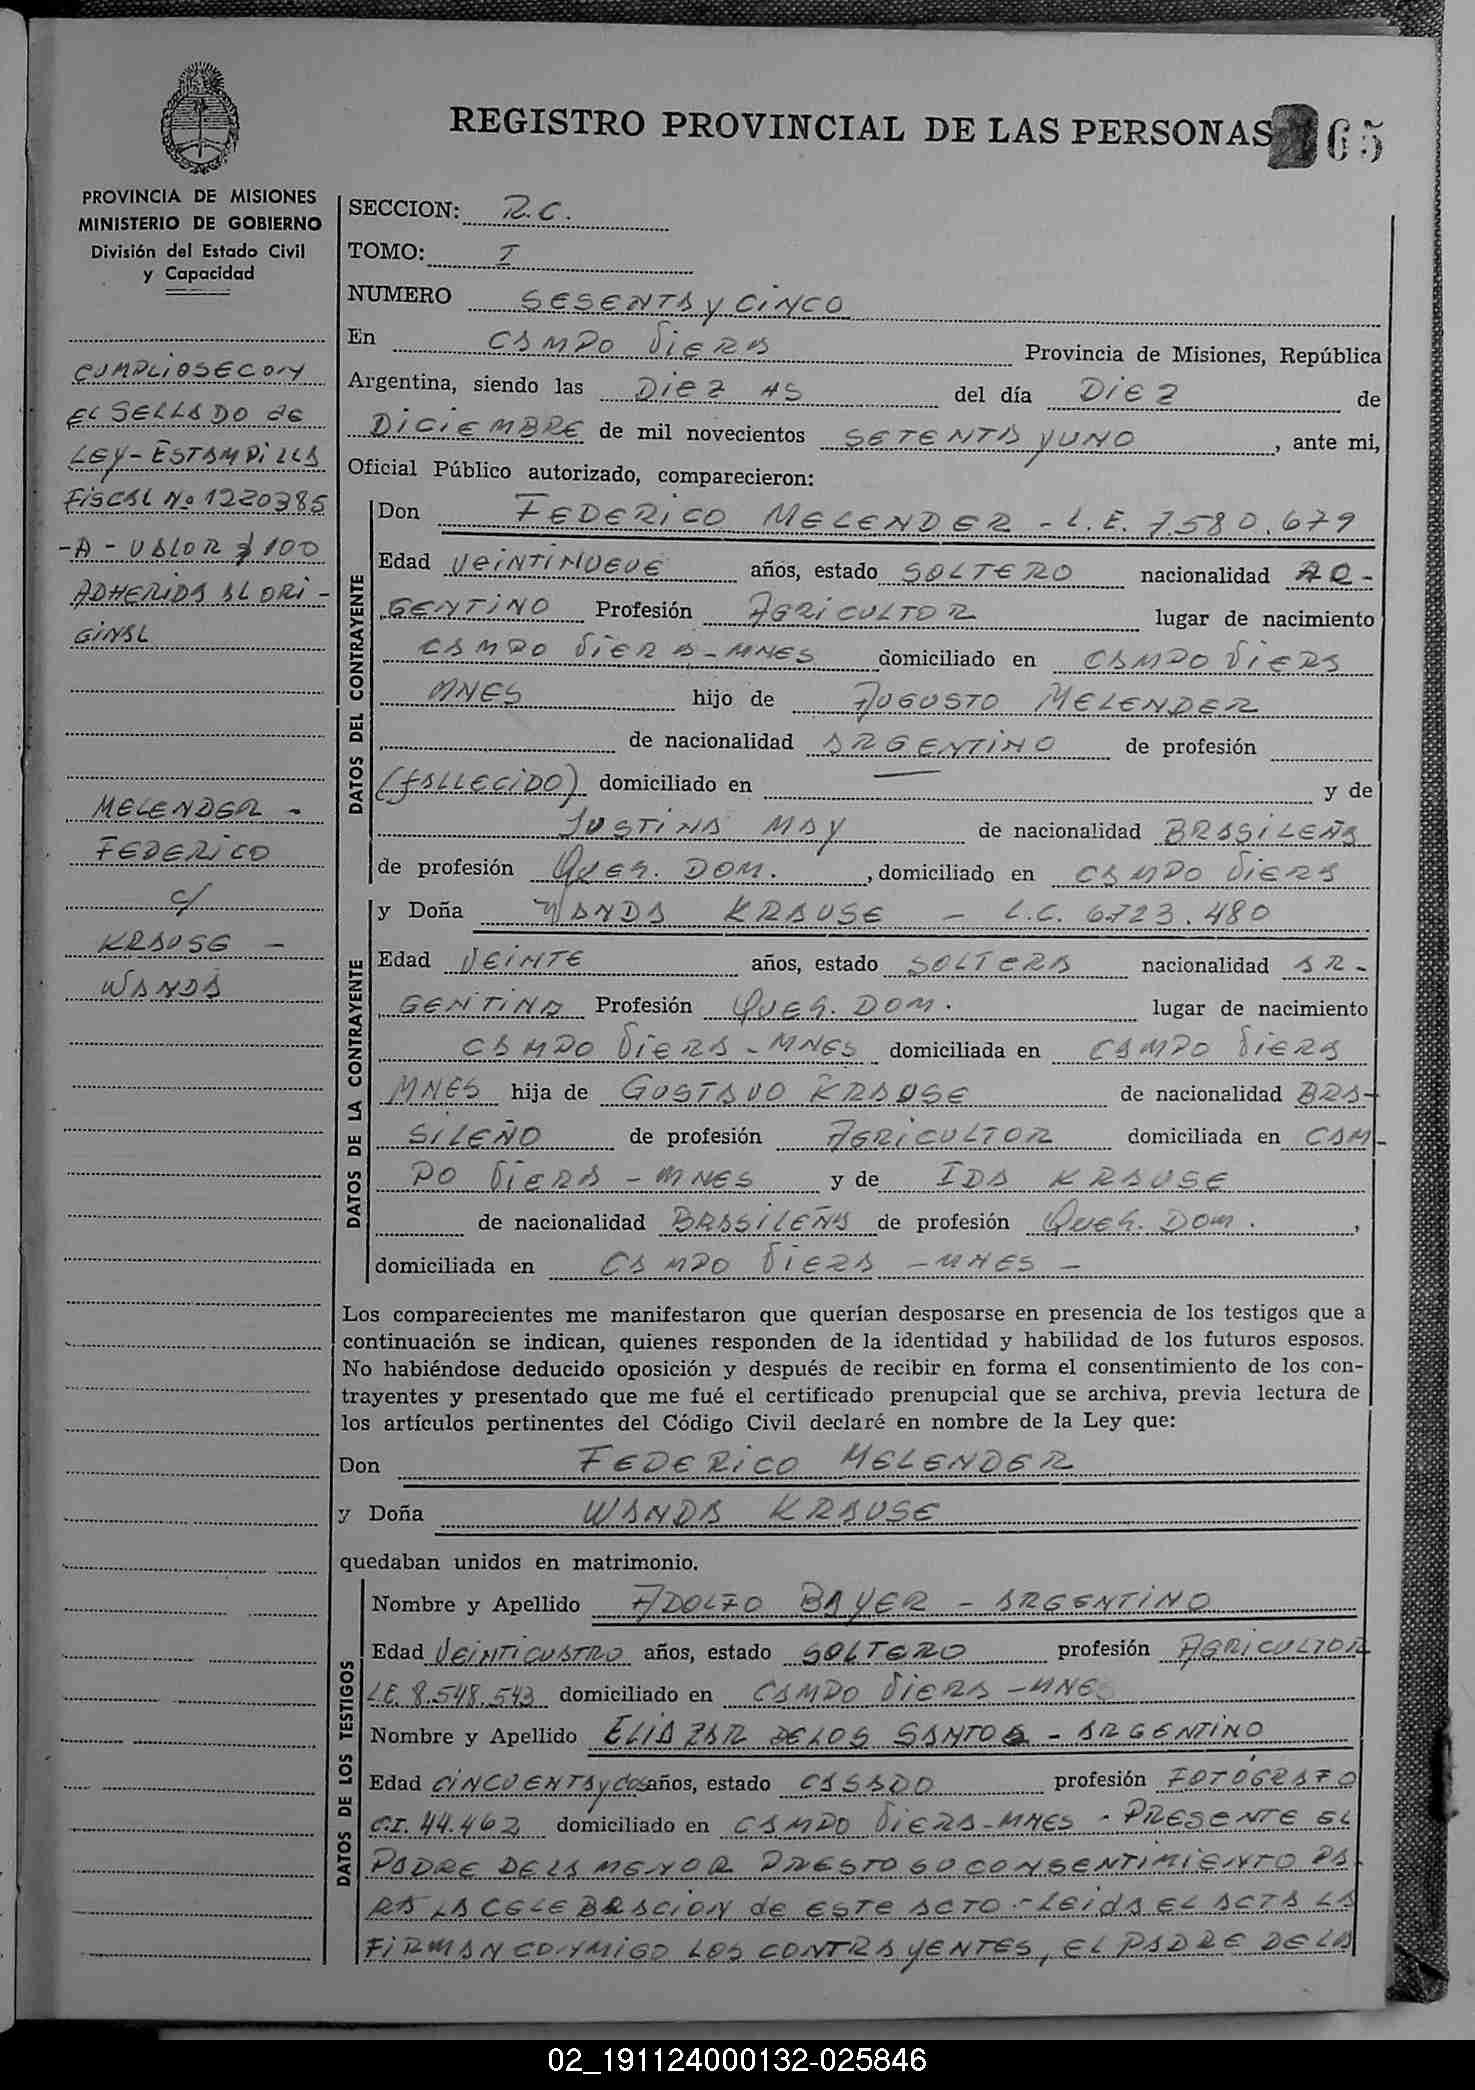 REGISTRO PROVINCIAL DE LAS PERSONAS 65
PROVINCIA DE MISIONES
MINISTERIO DE GOBIERNO
División del Estado Civil
y Capacidad
CUMPLIOSECON
EL SELLADO de
LEY-ESTAMPILLA
FiSCAL No 1220385
-A-VALOR $ 100
ADHERIDA AL ORI-
GINAL
MELENDER -
FEDERICO
c/
KRAUSE -
WANDA
SECCION: R.C.
TOMO: I
NUMERO SESENTA y CINCO
En CAMPO VIERA Provincia de Misiones, República
Argentina, siendo las DIEZ HS del día DIEZ de
DICIEMBRE de mil novecientos SETENTA y UNO, ante mi,
Oficial Público autorizado, comparecieron:
DATOS DEL CONTRAYENTE
Don FEDERICO MELENDER - L.E. 7.580.679
Edad VEINTINUEVE años, estado SOLTERO nacionalidad AR-
GENTINO Profesión AGRICULTOR lugar de nacimiento
CAMPO VIERA-MNES domiciliado en CAMPO VIERA
MNES hijo de AUGUSTO MELENDER
de nacionalidad ARGENTINO de profesión
(fALLECIDO) domiciliado en — y de
JUSTINA MAY de nacionalidad BRASILEÑA
de profesión QUEH. DOM. , domiciliado en CAMPO VIERA
DATOS DE LA CONTRAYENTE
y Doña WANDA KRAUSE - L.C. 6.723.480
Edad VEINTE años, estado SOLTERA nacionalidad AR-
GENTINA Profesión QUEH. DOM. lugar de nacimiento
CAMPO VIERA-MNES domiciliada en CAMPO VIERA
MNES hija de GUSTAVO KRAUSE de nacionalidad BRA-
SILEÑO de profesión AGRICULTOR domiciliada en CAM-
PO VIERA - MNES y de IDA KRAUSE
de nacionalidad BRASILEÑA de profesión QUEH. DOM. ,
domiciliada en CAMPO VIERA - MNES -
Los comparecientes me manifestaron que querían desposarse en presencia de los testigos que a
continuación se indican, quienes responden de la identidad y habilidad de los futuros esposos.
No habiéndose deducido oposición y después de recibir en forma el consentimiento de los con-
trayentes y presentado que me fué el certificado prenupcial que se archiva, previa lectura de
los artículos pertinentes del Código Civil declaré en nombre de la Ley que:
Don FEDERICO MELENDER
y Doña WANDA KRAUSE
quedaban unidos en matrimonio.
DATOS DE LOS TESTIGOS
Nombre y Apellido ADOLFO BAYER - ARGENTINO
Edad VEINTICUATRO años, estado SOLTERO profesión AGRICULTOR
LE. 8.548.543 domiciliado en CAMPO VIERA - MNES
Nombre y Apellido ELIAZAR DE LOS SANTOS - ARGENTINO
Edad CINCUENTAydos años, estado CASADO profesión FOTÓGRAFO
C.I. 44.462 domiciliado en CAMPO VIERA-MNES - PRESENTE EL
PADRE DE LA MENOR PRESTO SU CONSENTIMIENTO PA-
RA LA CELEBRACION de ESTE ACTO.- LEIDA EL ACTA LA
FIRMAN CONMIGO LOS CONTRAYENTES, EL PADRE DE LA
02_191124000132-025846